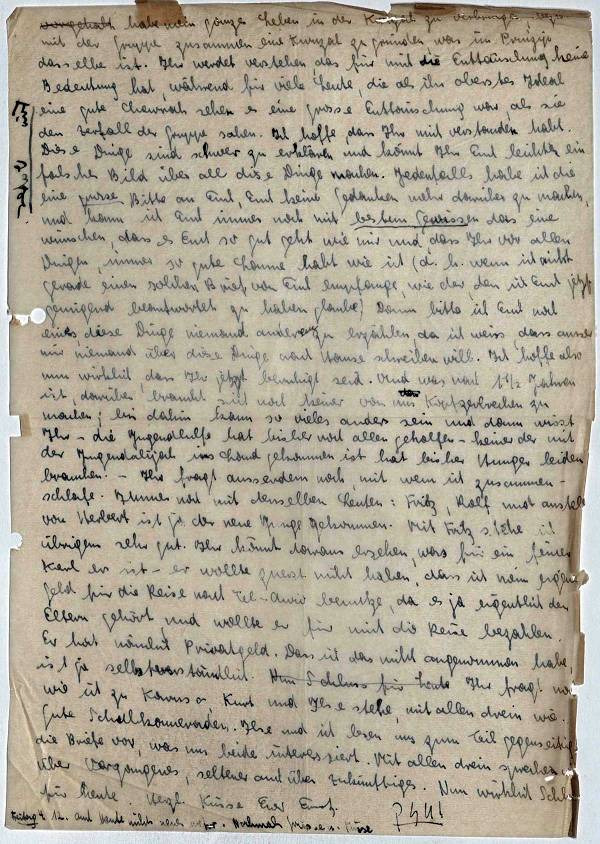 habe mein ganzes Leben in der Kwuzah zu verbringen,
mit der Gruppe zusammen eine Kwuzah zu gründen, was im Prinzip
dasselbe ist. Ihr werdet verstehen das für mich die Enttäuschung keine
Bedeutung hat, während für viele Leute, die als ihr oberstes Ideal
eine gute Chewrah sehen es eine grosse Enttäuschung war, als sie
den Zerfall der Gruppe sahen. Ich hoffe, dass Ihr mich verstanden habt.
Diese Dinge sind schwer zu erklären und könnt Ihr Euch leicht ein
falsches Bild über all diese Dinge machen. Jedenfalls habe ich die
eine grosse Bitte an Euch, Euch keine Gedanken mehr darüber zu machen,
und kann ich Euch immer noch mit bestem Gewissen das eine
wünschen, dass es Euch so gut geht wie mir und, dass Ihr vor allen
Dingen, immer so gute Laune habt wie ich (d. h. wenn ich nicht
gerade einen solchen Brief von Euch empfange, wie der, den ich Euch jetzt
genügend beantwortet zu haben glaube) Dann bitte ich Euch noch
eines, diese Dinge niemand anderem zu erzählen, da ich weiss, dass ausser
mir niemand über diese Dinge nach Hause schreiben will. Ich hoffe also
nun wirklich dass Ihr jetzt beruhigt seid. Und was nach 1 1/2 Jahren
ist, darüber braucht sich noch keiner von uns Kopfzerbrechen zu
machen; bis dahin kann so vieles anders sein und dann wisst
Ihr – die Jugendhilfe hat bisher noch allen geholfen – keiner der mit
der Jugendalijah ins Land gekommen ist hat bisher Hunger leiden
brauchen. – Ihr fragt ausserdem noch, mit wem ich zusammen-
schlafe. Immer noch mit denselben Leuten: Fritz, Rolf und anstelle
von Herbert ist ja der neue Junge gekommen. Mit Fritz stehe ich
übrigens sehr gut. Ihr könnt daraus ersehen, was für ein feiner
Kerl er ist – er wollte zuerst nicht haben, dass ich mein eigenes
Geld für die Reise nach Tel-Awiw benutze, da es ja eigentlich den
Eltern gehört und wollte er für mich die Reise bezahlen.
Er hat nämlich Privatgeld. Dass ich das nicht angenommen habe
ist ja selbstverständlich. Nun Schluss für heute Ihr fragt
wie ich zu Kurt und Ilse stehe, mit allen drein wie
gute Schulkameraden. Ilse und ich lesen uns zum Teil gegenseitig
die Briefe vor, was uns beide interessiert. Mit allen drein sprechen
über Vergangenes, seltener auch über Zukünftiges. Nun wirklich
für heute. Herzl. Küsse Euer
Freitag 4. 12. auch heute nichts neues Nochmals Grüsse u. Küsse